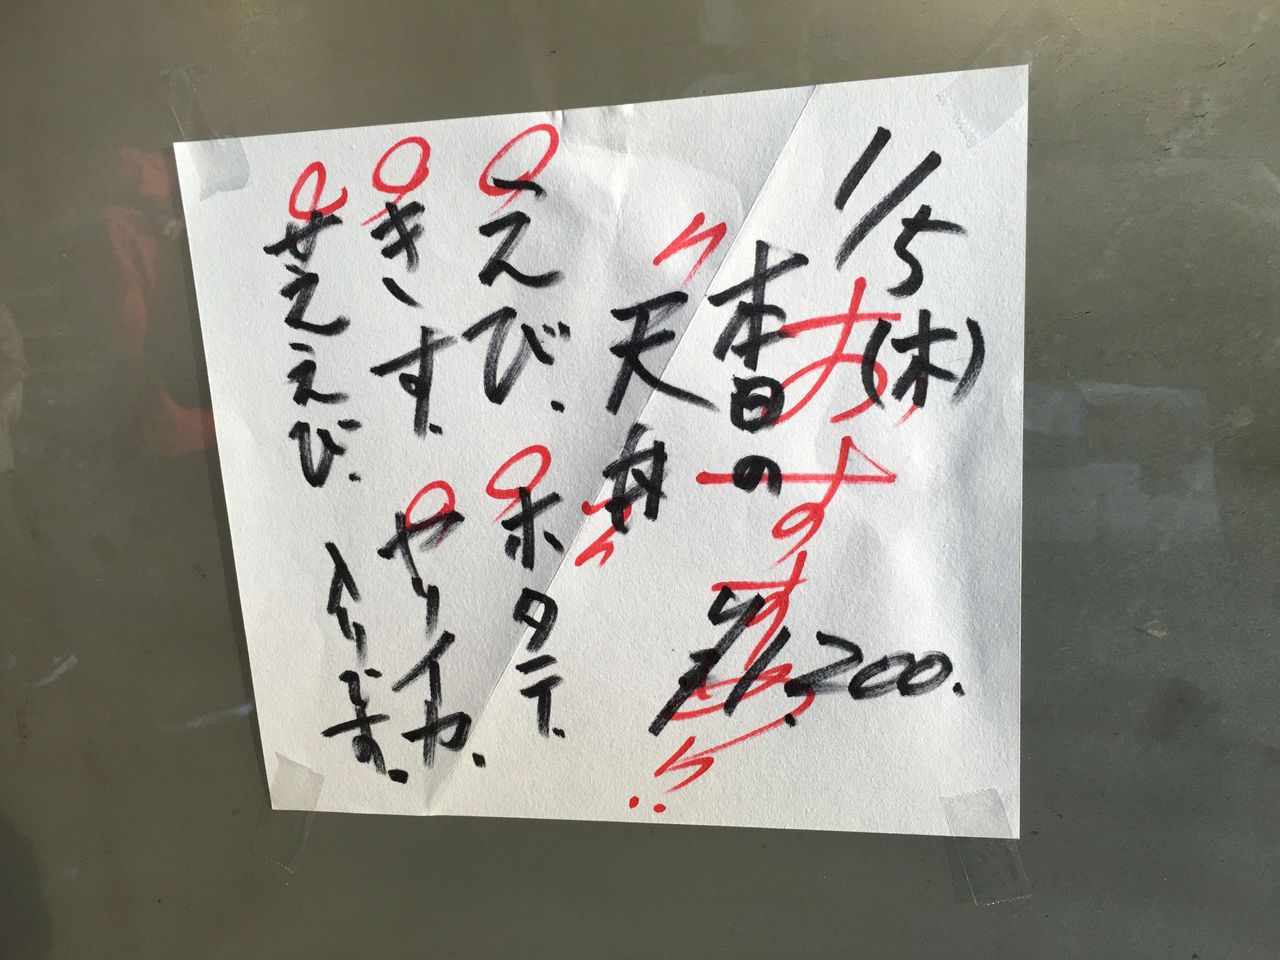 1/5(木)
おすすめ!!
本日の
天丼
¥1,200.
えび、ホタテ、
きす、やりイカ、
せええび、入りです。